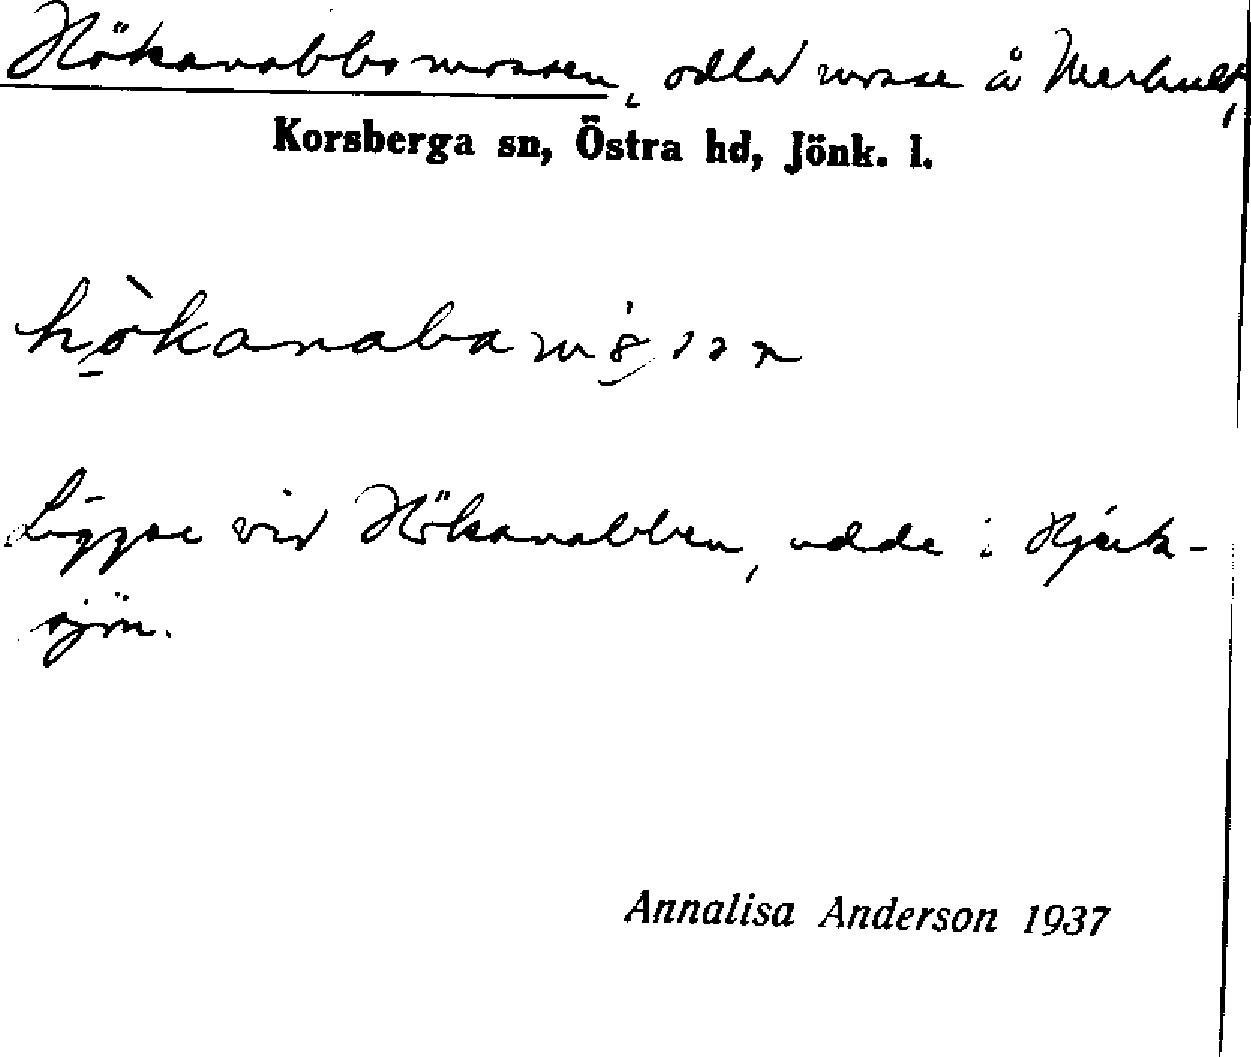 Hökanabbamossen, odlad mosse å Merhult,
Korsberga sn, Östra hd, Jönk. l.
Ligger vid Hökanabben, udde i
sjön.
Annalisa Anderson 1937